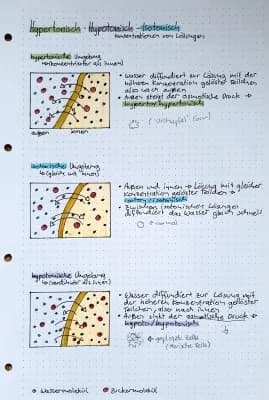 Hypertonisch - Hypotonisch - Isotonisch
Konzentrationen von Lösungen
hypertonische Umgebung
(konzentrierter als innen)
außen innen
• Wasser diffundiert zur Lösung mit der
höheren Konzentration gelöster Teilchen
also nach außen
• Außen steigt der osmotische Druck →
hyperton/hypertonisch
isotonische Umgebung
→ (gleich wie innen)
• Außen und innen → Lösung mit gleicher
Konzentration gelöster Teilchen →
isoton/isotonisch
• Zwischen isotonischen Lösungen
diffundiert das Wasser gleich schnell
→ normal
hypotonische Umgebung
als innen)
• Wasser diffundiert zur Lösung mit
der höheren Konzentration gelöster
Teilchen, also nach innen
• Außen sinkt der osmotische Druck →
hypoton/hypotonisch
geplatzte Zelle
Wassermolekül Zuckermolekül